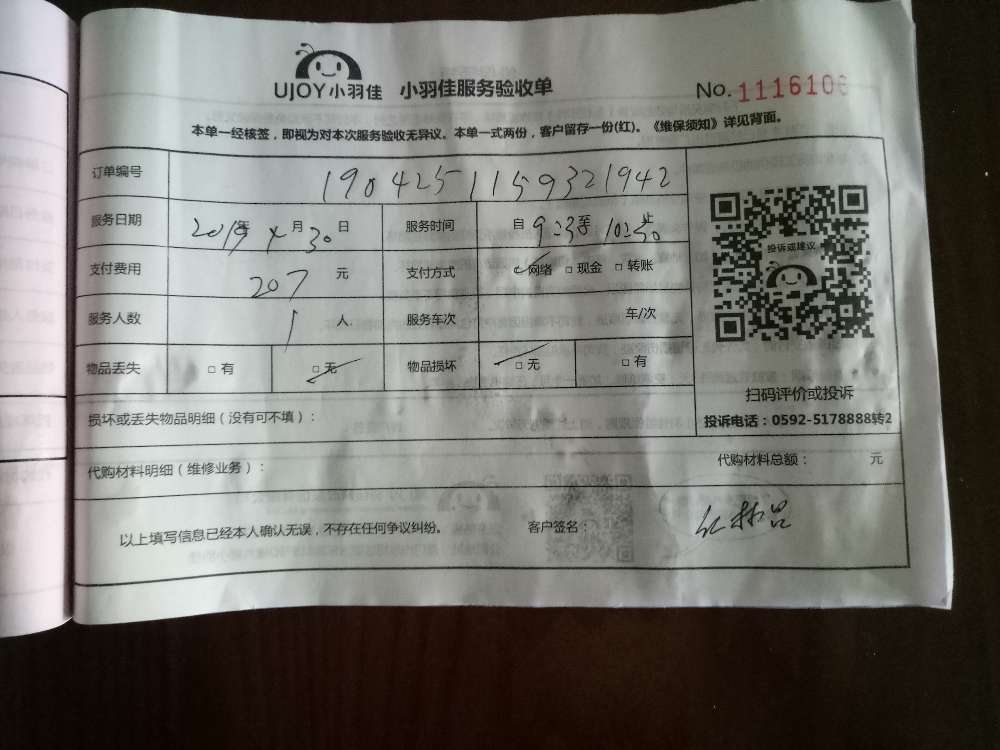 UJOY小羽佳 小羽佳服务验收单 No. 1116106
本单一经核签，即视为对本次服务验收无异议。本单一式两份，客户留存一份(红)。《维保须知》详见背面。
订单编号 1904251159321942
服务日期 2019年4月30日 服务时间 自9:23至10:30止
投诉或建议
支付费用 207元 支付方式 网络 □现金 □转账
服务人数 1人 服务车次 车/次
物品丢失 □有 □无 物品损坏 □无 □有
扫码评价或投诉
损坏或丢失物品明细（没有可不填）： 投诉电话：0592-5178888转2
代购材料明细（维修业务）： 代购材料总额： 元
以上填写信息已经本人确认无误，不存在任何争议纠纷。 客户签名：